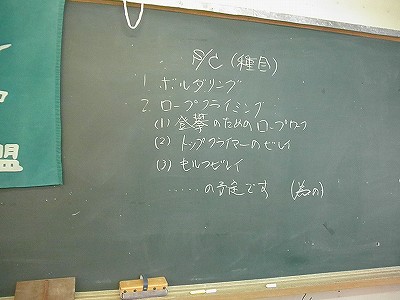 (種目)
1. ボルダリング
2. ロープクライミング
(1) 登攀のためのロープワーク
(2) トップクライマーのビレイ
(3) セルフビレイ
……の予定です (為の)
盟